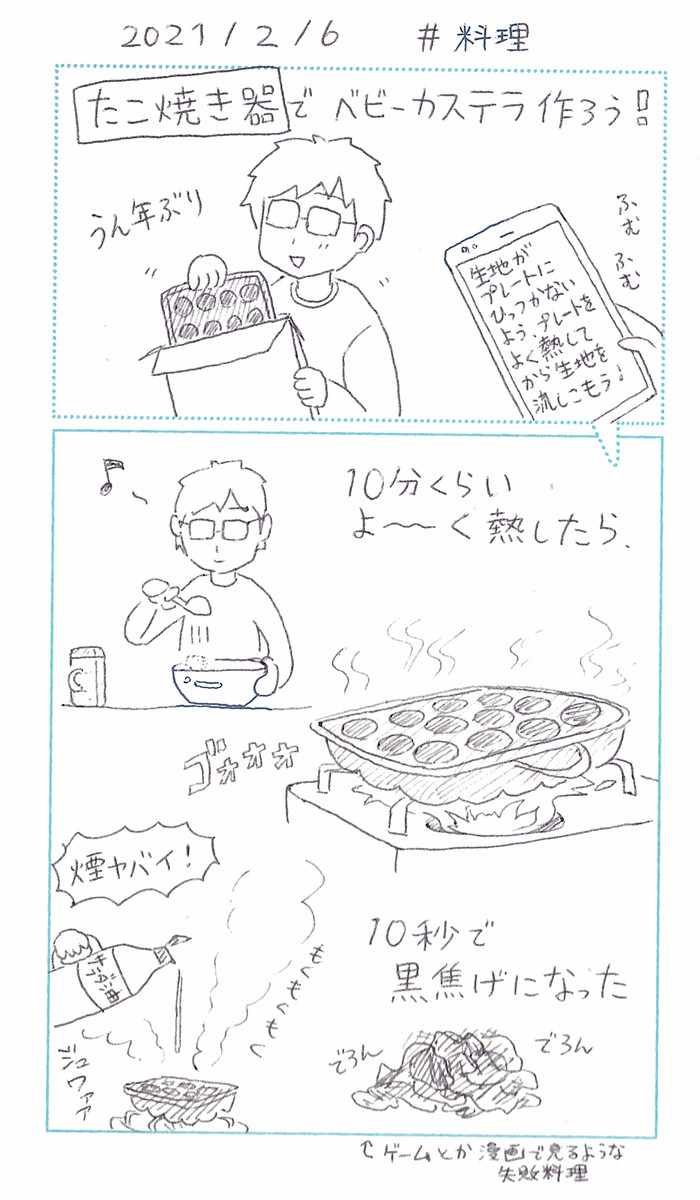 2021/2/6 #料理
たこ焼き器で ベビーカステラ作ろう!!
うん年ぶり
ふむ
ふむ
生地が
プレートに
ひっつかない
よう、プレートを
よく熱して
から生地を
流しこもう!
10分くらい
よ〜〜く熱したら、
ゴォォォ
煙ヤバイ!
サラダ油
もくもくもく
ジュワァァ
10秒で
黒焦げになった
でろん
でろん
↑ゲームとか漫画で見るような
失敗料理